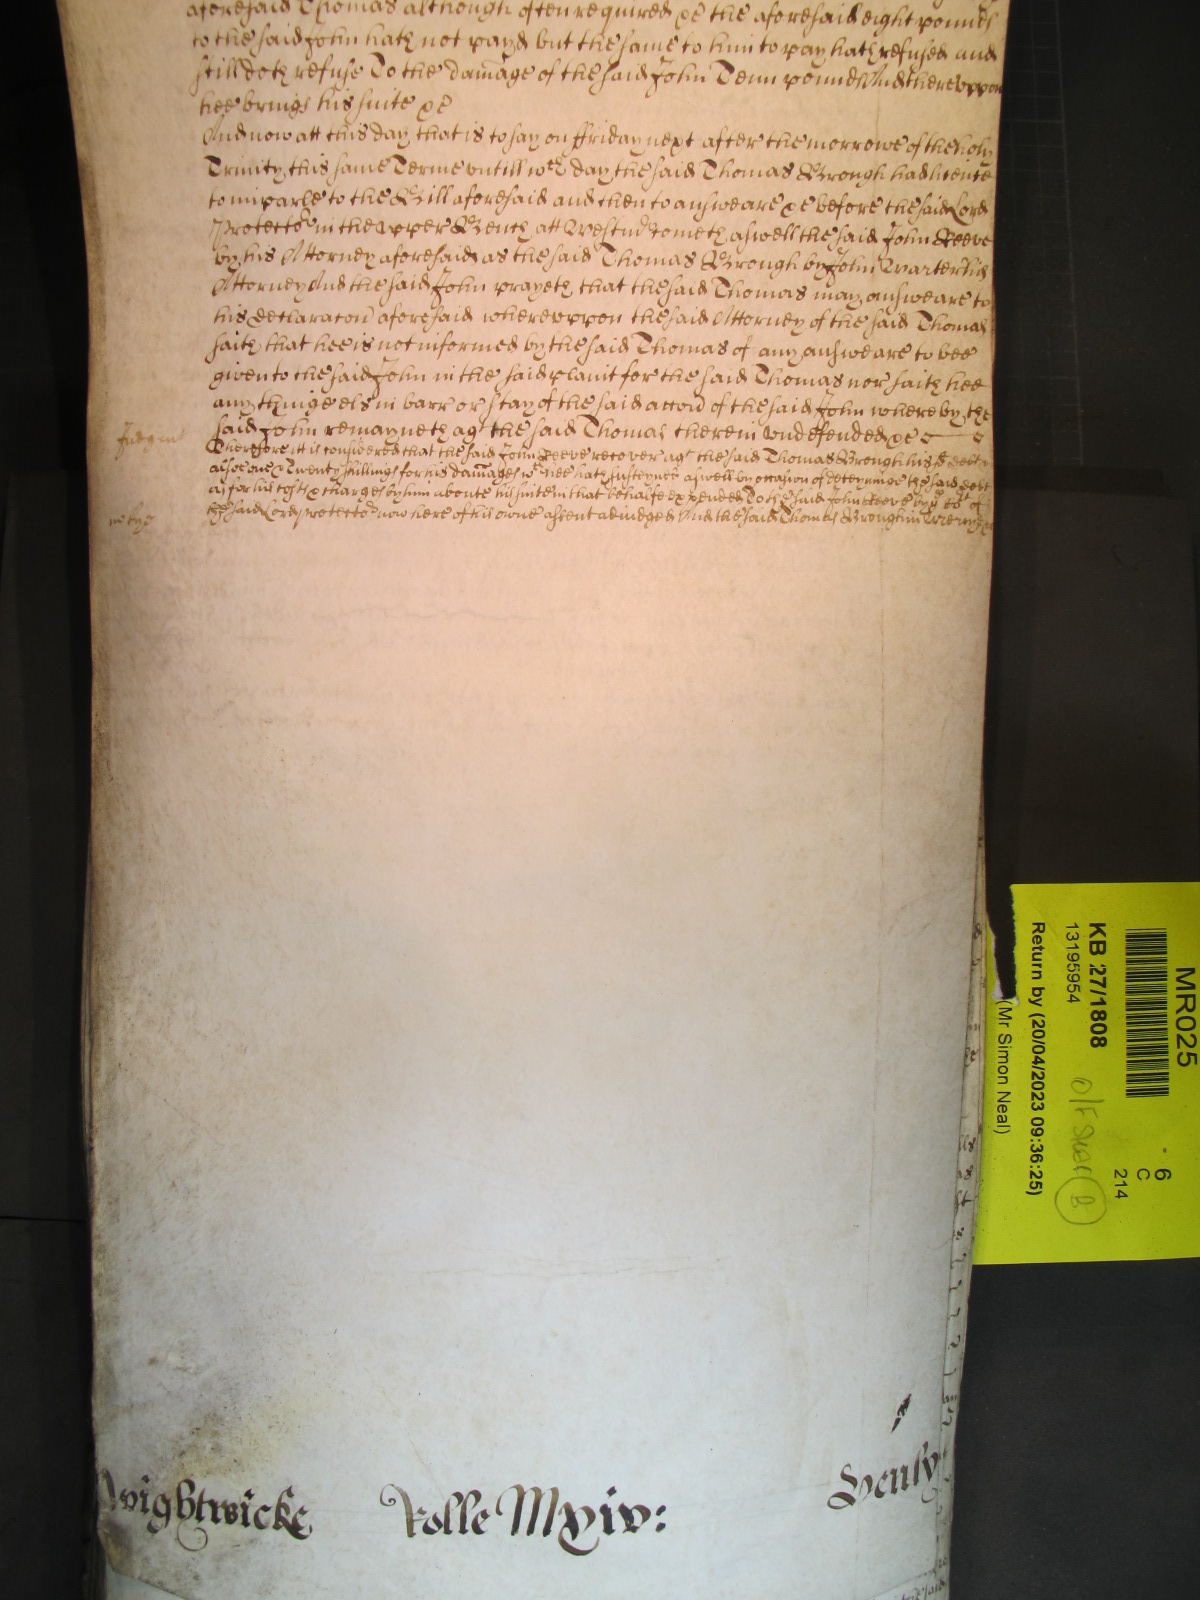 aforesaid Thomas although often required &c the aforesaid eight pounds
to the said John hath not payd but the same to him to pay hath refused and
still doth refuse To the damage of the said John Tenn pounds And thereuppon
hee brings his suite &c
And now att this day that is to say on ffriday next after the morrowe of the holy
Trinity this same Terme untill wch day the said Thomas Brough had licence
to imparle to the Bill aforesaid and then to answeare &c before the said Lord
Protector in the upper Bench att Westmr cometh aswell the said John Reeve
by his Attorney aforesaid as the said Thomas Brough by John
Attorney And the said John prayeth that the said Thomas may answeare to
his declaracon aforesaid whereuppon the said Attorney of the said Thomas
saith that hee is not informed by the said Thomas of any answeare to bee
given to the said John in the said plaint for the said Thomas nor saith hee
any thinge els in barr or stay of the said accon of the said John whereby the
said John remayneth agt the said Thomas therein undefended &c
Judgmt
Therefore it is considered that the said John Reeve recover agt the said Thomas Brough his sd debt
alsoe Twenty shillings for his damages wch hee hath susteyned aswell by occasion of deteyninge the said debt
as for his costs & charges by him aboute his suite in that behalfe expended To the said John Reeve by
the said Lord Protector now here of his owne assent adiudged And the said Thomas Brough in
Wightwicke
Rolle Mxiv:
MR025
6
C
214
KB 27/1808
13195954
Return by (20/04/2023 09:36:25)
(Mr Simon Neal)
B